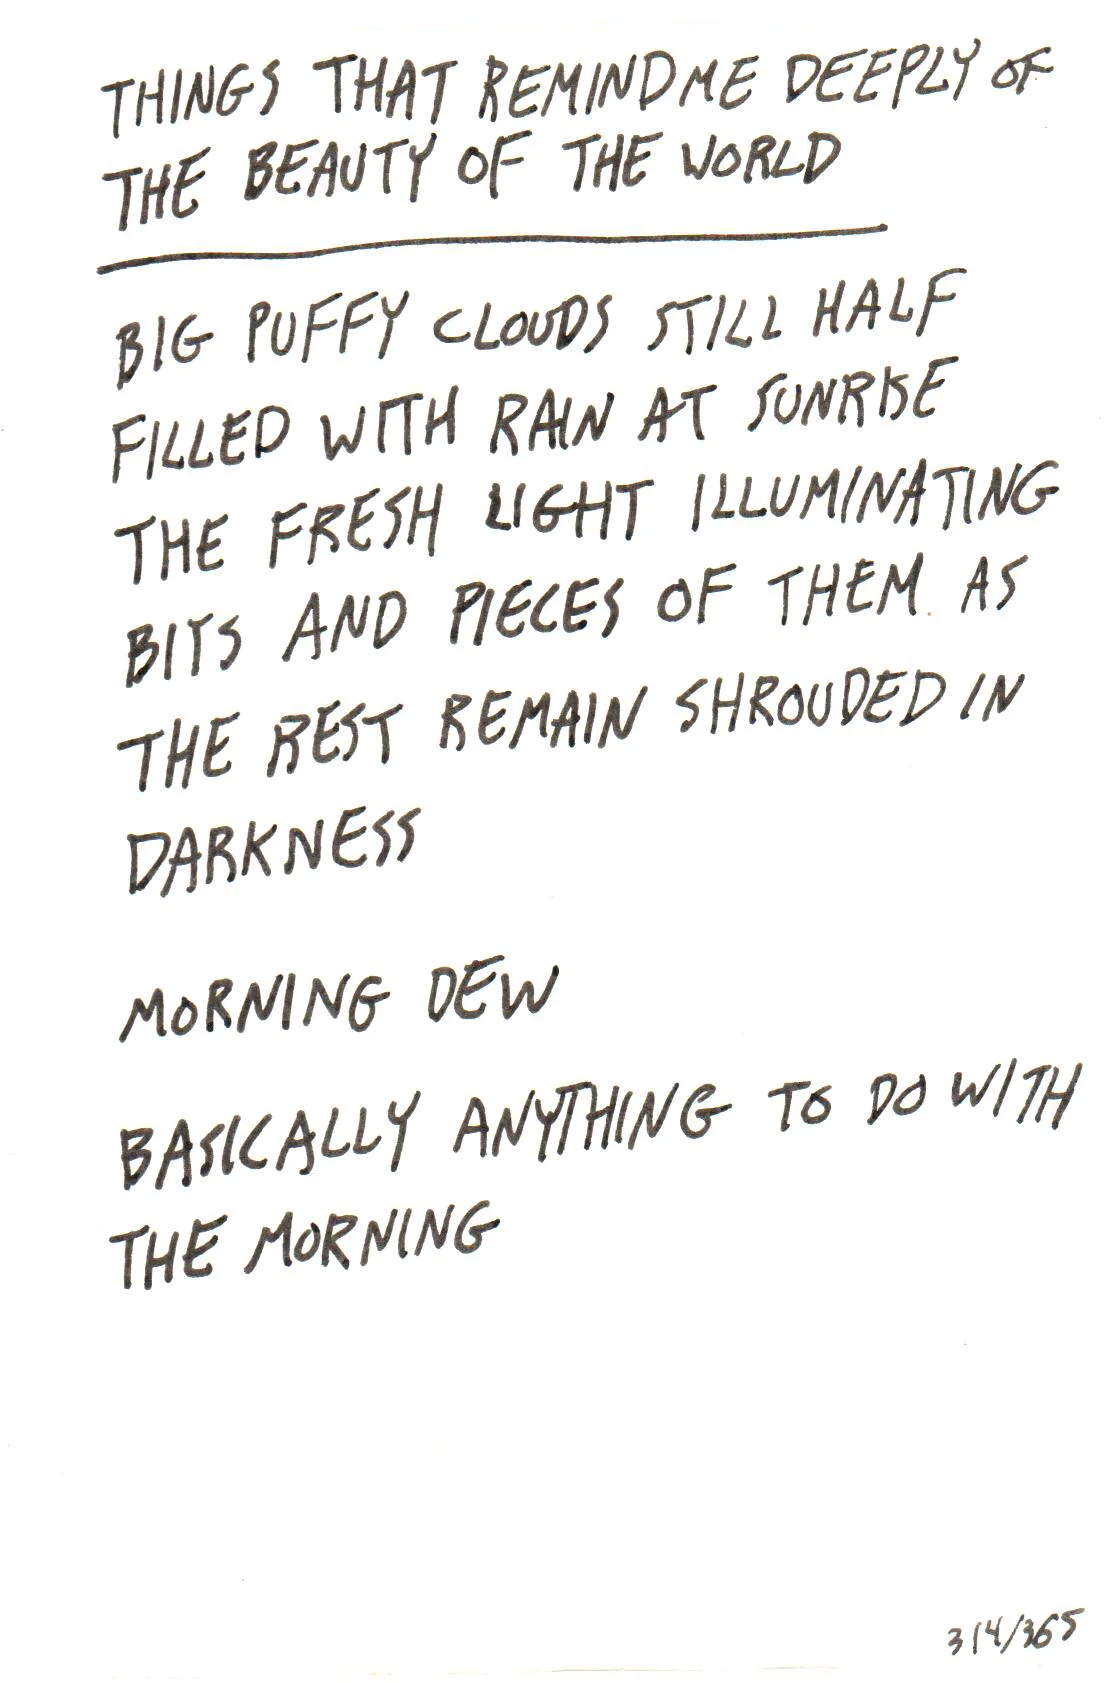 THINGS THAT REMIND ME DEEPLY OF
THE BEAUTY OF THE WORLD
BIG PUFFY CLOUDS STILL HALF
FILLED WITH RAIN AT SUNRISE
THE FRESH LIGHT ILLUMINATING
BITS AND PIECES OF THEM AS
THE REST REMAIN SHROUDED IN
DARKNESS
MORNING DEW
BASICALLY ANYTHING TO DO WITH
THE MORNING
314/365